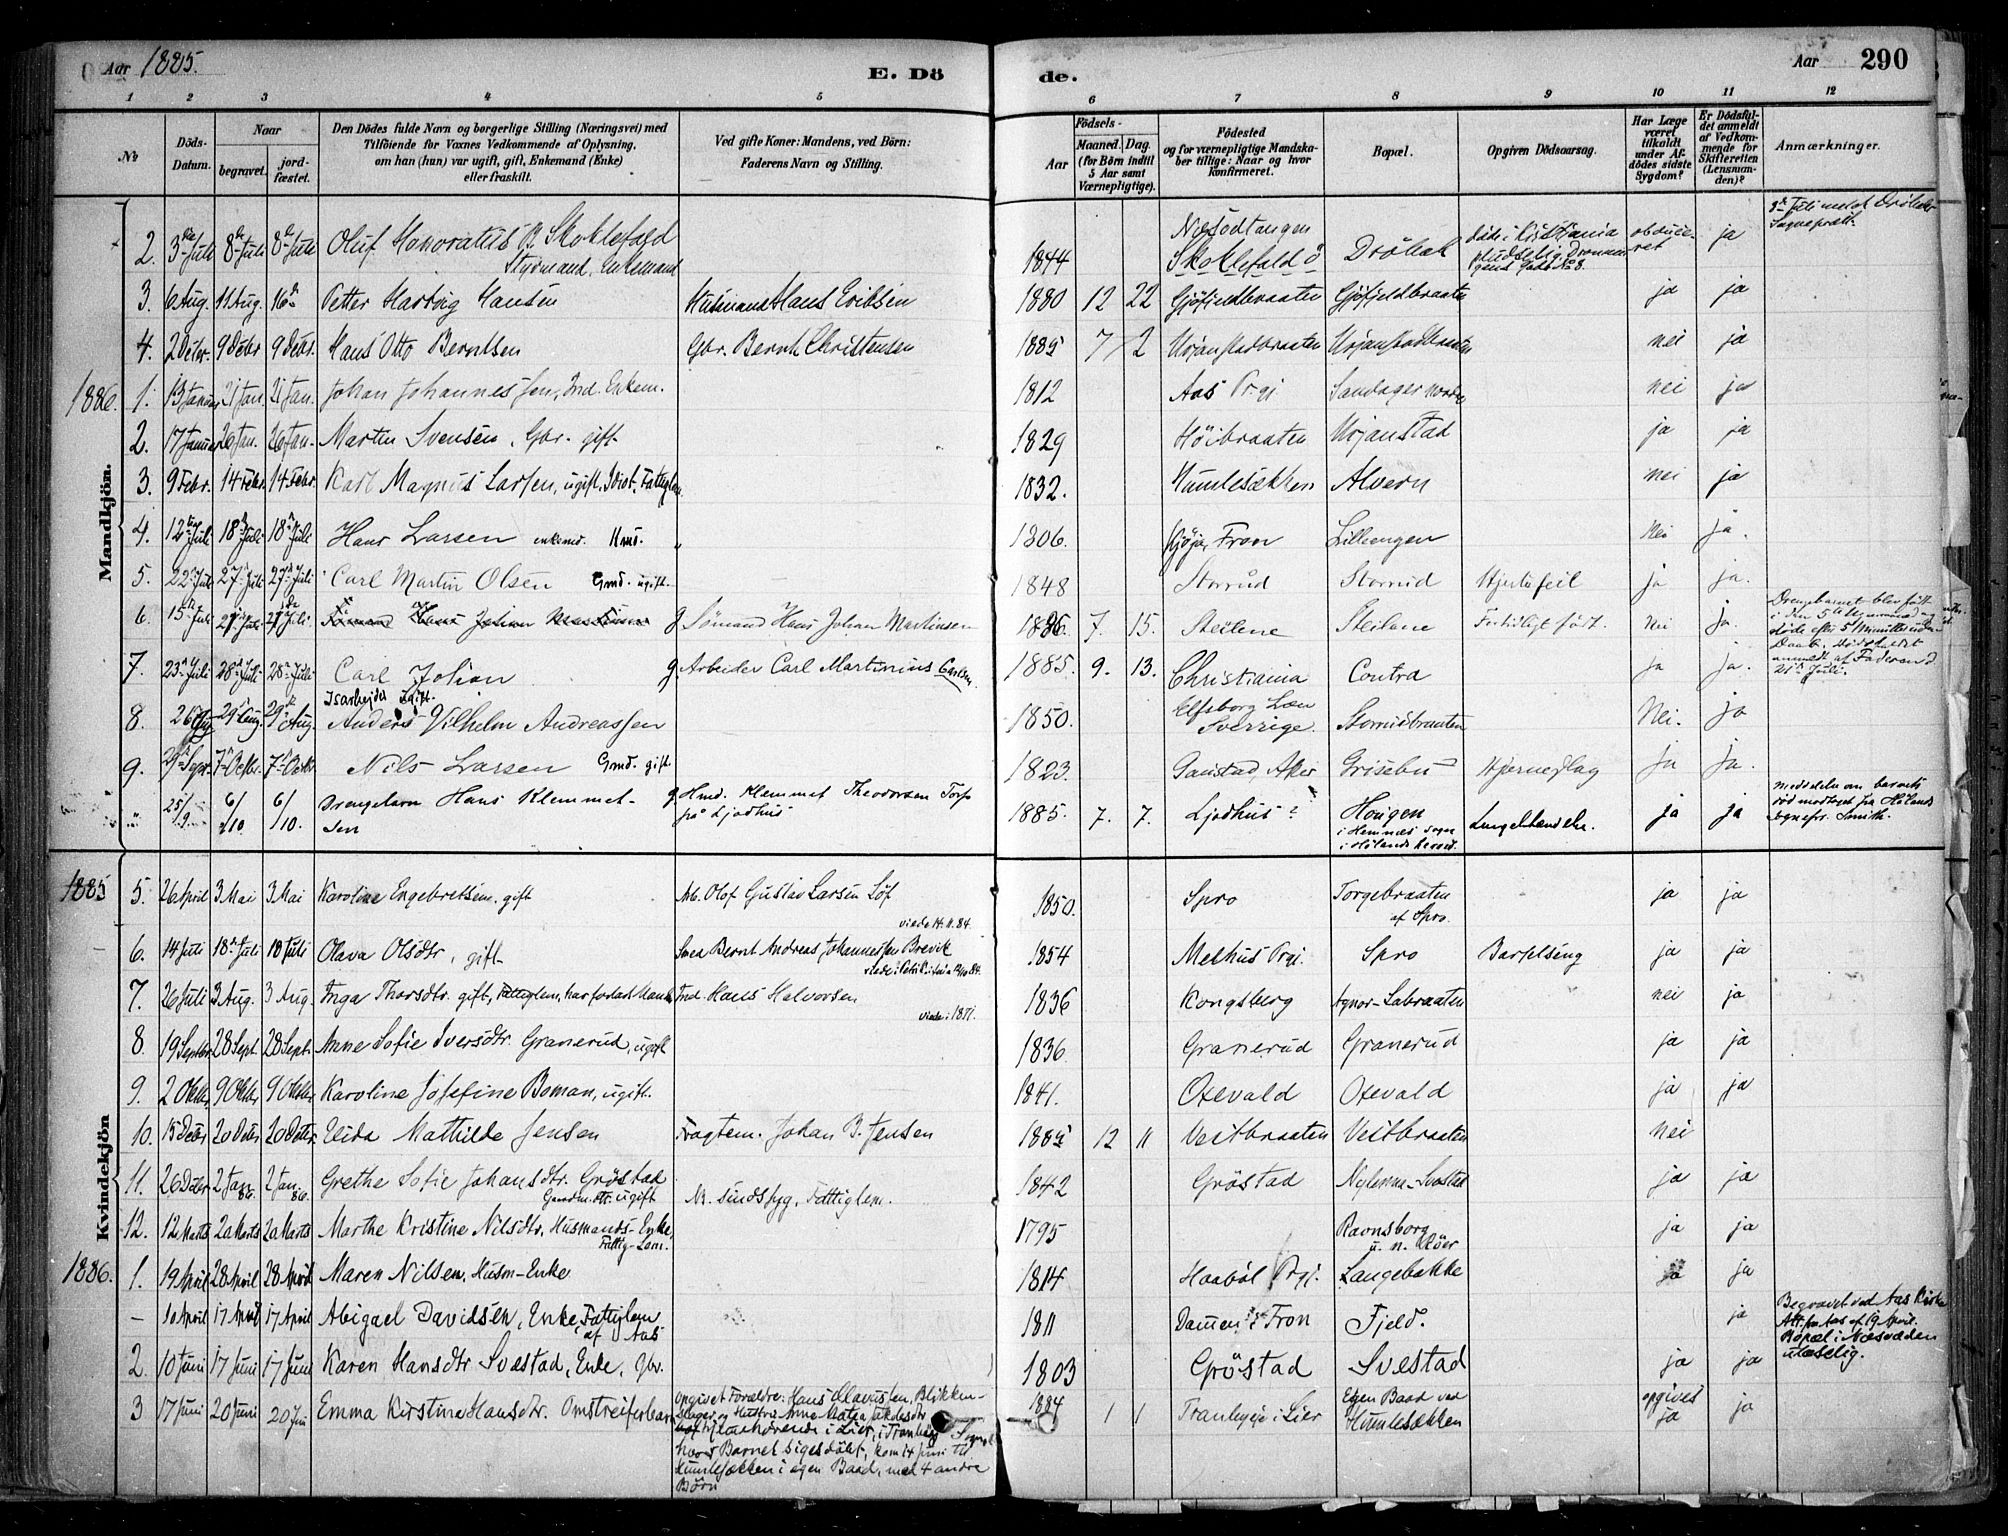 Aar 1885.
E. Dö
de.
Aar
290
1 2 3 4 5 6 7 8 9 10 11 12
№
Döds-Datum.
Naar
begravet.
jordfæstet.
Den Dödes fulde Navn og borgerlige Stilling (Næringsvei) med
Tilföiende for Voxnes Vedkommende af Oplysning.
om han (hun) var ugift, gift, Enkemand (Enke)
eller fraskilt.
Ved gifte Koner: Mandens, ved Börn:
Faderens Navn og Stilling.
Födsels-
Aar
Maaned. Dag.
(for Börn indtil
5 Aar samt
Værnepligtige).
Födested
og for værnepligtige Mandska-
ber tillige: Naar og hvor
konfirmeret.
Bopæl.
Opgiven Dödsaarsag.
Har Læge
været
tilkaldt
under Af-
dödes sidste
Sygdom?
Er Dödsfal-
det anmeldt
af Vedkom-
mende for
Skifteretten
(Lensman-
den)?
Anmærkninger.
Mandkjön.
2. 3die Juli 8de Juli 8de Juli Oluf Honoratus Skoklefald Styrmand, Enkemand 1844 Nesodtangen Skoklefald Dröbak döde i Kristiania pludselig obducert ja
3. 6 Aug. 11 Aug. 16 Petter Hartvig Hansen Husmand Hans Eriksen 1880 12 22 Gjöfjeldbraaten Gjöfjeldbraaten ja ja
4. 2 Deter. 9 Debr 9 Debr. Hans Otto Berntsen Gbr. Bernh. Christensen 1885 7 2 Urjanstadbraaten Urjanstadbraaten nei ja
1886. 1. 13 Januar 21 Jan. 21 Jan. Johan Johannessen, Ind. Enkem. 1812 Aas Prgj. Sandager nordre nei ja
2. 17 Januar 26 Jan. 26 Jan. Martin Svensen, Gbr. gift 1829 Höibraaten Urjanstad ja ja
3. 9 Febr. 14 Febr. 14 Febr. Karl Magnus Larsen, ugift, Idiot, Fattiglem 1832. Humlesækken Alvern nei ja
4. 12te Juli 18 Juli 18 Juli Hans Larsen enkemd. Hmd. " 1806. Fron Lillengen Nei ja.
5. 22 Juli 27 Juli 27 Juli Carl Martin Olsen Gmd. ugift 1848 Storrud Storrud Hjertefeil ja ja.
6. 15 Juli 21 Juli 21 Juli g. Sömand Hans Johan Martinsen 1886. 7. 15. Steilene Steilene Fortidligt födt. Nei ja. Drengebarnet blev födt i den 5te Maaned og döde efter 5 Minutter uden Daab. Dödsfaldet anmeldt af Faderen d. 21 Juli.
7. 23 Juli 28 Juli 28 Juli Carl Johan g. Arbeider Carl Martinius Carlsen. 1885. 9. 13. Christiania Contra ja ja.
8. 26 Aug 29 Aug. 29 Aug. Isarbejder Ugift. Anders Vilhelm Andreassen 1850. Elfsborg Læn Sverrige. Storrudbraaten Nei. ja
9. 29 Sept. 7 Octbr. 7 Octbr Nils Larsen Gmd. gift 1823. Gaustad, Aker Grisebu Hjerneslag ja ja.
" 25/9. 6/10 6/10. Drengebarn Hans Klemmet-sen g. Hmd. Klemmet Theodorsen Torp på Ljodhus 1885. 7. 7. Ljodhus? Horigen i Hemnæs sogn i Hölands herred. Lungebetændelse. ja ja Meddelelse om barnets död modtaget fra Hölands sognepr. Smith.
Kvindekjön
1885 5. 26 April 3 Mai 3 Mai Karoline Engebretsen. gift Arb. Olof Gustav Larsen Löf viede 14.11.84. 1850. Spro Torgebraaten af Spro. ja ja
6. 14 Juli 18 Juli 18 Juli Olava Olsdtr, gift Bernt Andreas Johannessen Brevik 1854 Melhus Prgj. Spro Barselseng ja ja
7. 26 Juli 3 Aug. 3 Aug. Inga Thorsdtr. gift, Fattiglem, har forladt Mand Ind. Hans Halvorsen viede i 1871. 1836 Kongsberg Agnor-Labraaten nei ja
8. 19 Septbr 28 Sept. 28 Sept. Anne Sofie Iversdtr. Granerud, ugift 1836. Granerud Granerud ja ja
9. 2 Oktbr. 9 Oktbr. 9 Oktbr. Karoline Josefine Boman, ugift. 1841. Oxevald Oxevald ja ja
10. 15 Debr 20 Debr 20 Debr. Elida Mathilde Jensen Fragtem. Johan B. Jensen 1885 12 11 Veitbraaten Veitbraaten nei
11. 26 Debr 2 Jan 86. 2 Jan. 86. Grethe Sofie Johansdtr. Gröstad Gaardm. dtr. ugift Nb. sindssyg. Fattiglem. 1842 Gröstad Nylænna-Svestad ja ja
12. 12 Marts 20 Marts 20 Marts Marthe Kristine Nilsdtr. Husmands-Enke, Fattig-Lem. 1795 Ravnsborg u. n. Röer ja ja
1886. 1. 19 April 28 April 28 April Maren Nilsen, Husm-Enke 1814 Haaböl Prgj. Langebakke ja ja
— 10 April 17 April 17 April Abigael Davidsen, Enke, Fattiglem af Aas 1811 Damen i Fron Fjeld. ja Begravet ved Aas Kirke Att. fra Aas af 19 April. Bopæl i Næsodden ulæselig.
2. 10 Juni 17 Juni 17 Juni Karen Hansdtr Svestad, Enke, Gbr. 1803 Gröstad Svestad ja ja
3 17 Juni 20 Juni 20 Juni Emma Kirstine Hansdtr. Omstreiferbarn opgivet Forældre: Hans Olavussen, Blikken-slager og Hustru Anne Matea Jakobsdtr hjemhörende i Lier, i Tranbÿ Sogn, hvor Barnet siges döbt, kom 14 Juni til Humlesækken i egen Baad, med 4 andre Börn 1884 1 1 Tranbyeje i Lier Egen Baad ved Humlesækken opgives ja ja